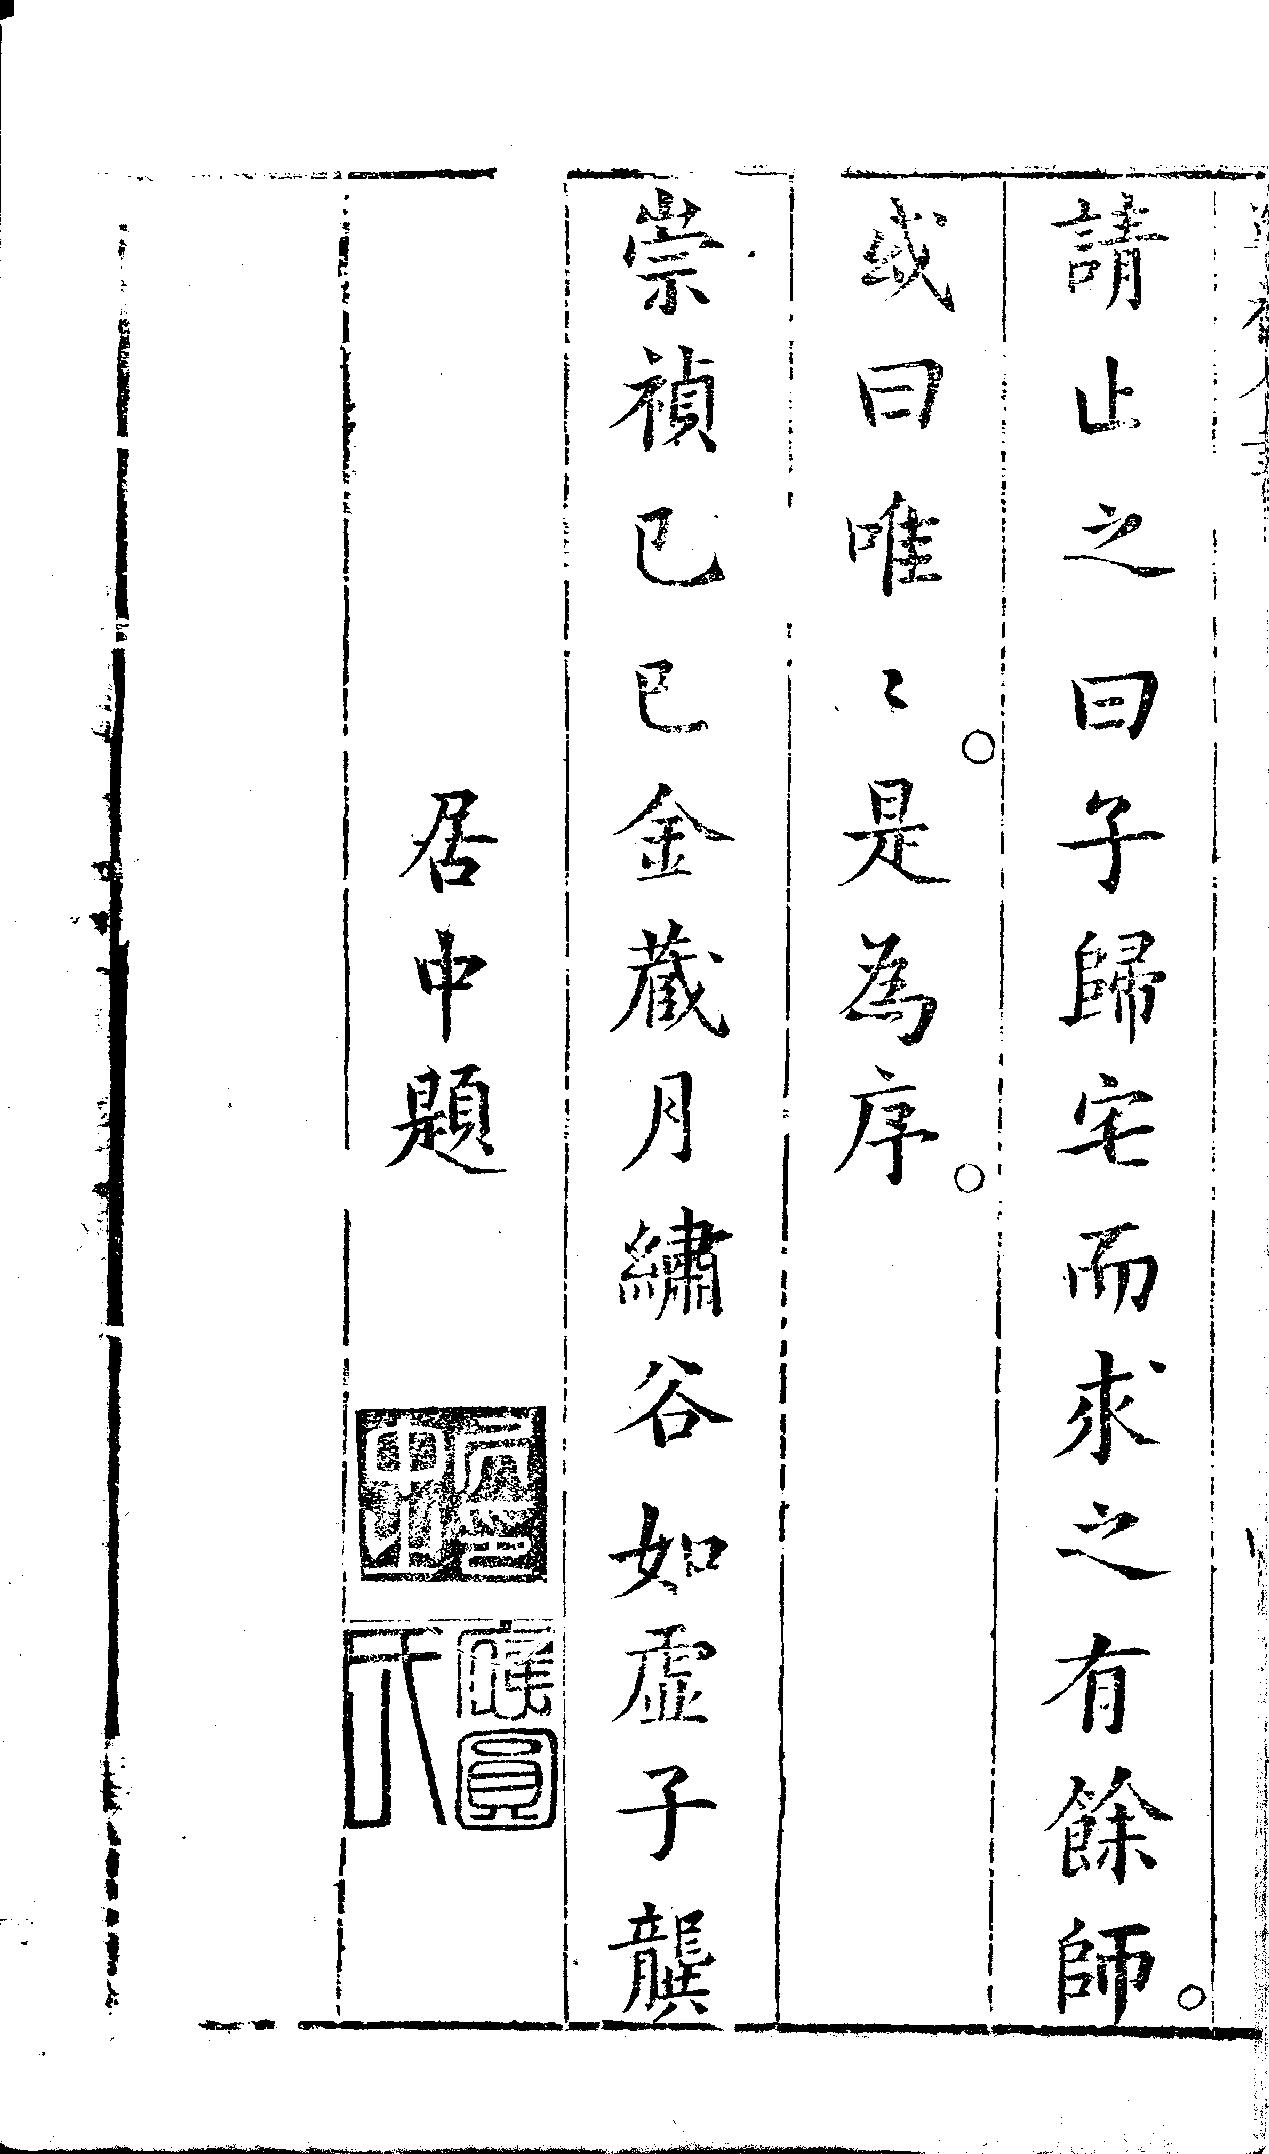 請止之曰子歸宅而求之有餘師。
或曰唯〻。是為序。
崇禎己巳金藏月繡谷如虛子龔
居中題
居中
應圓